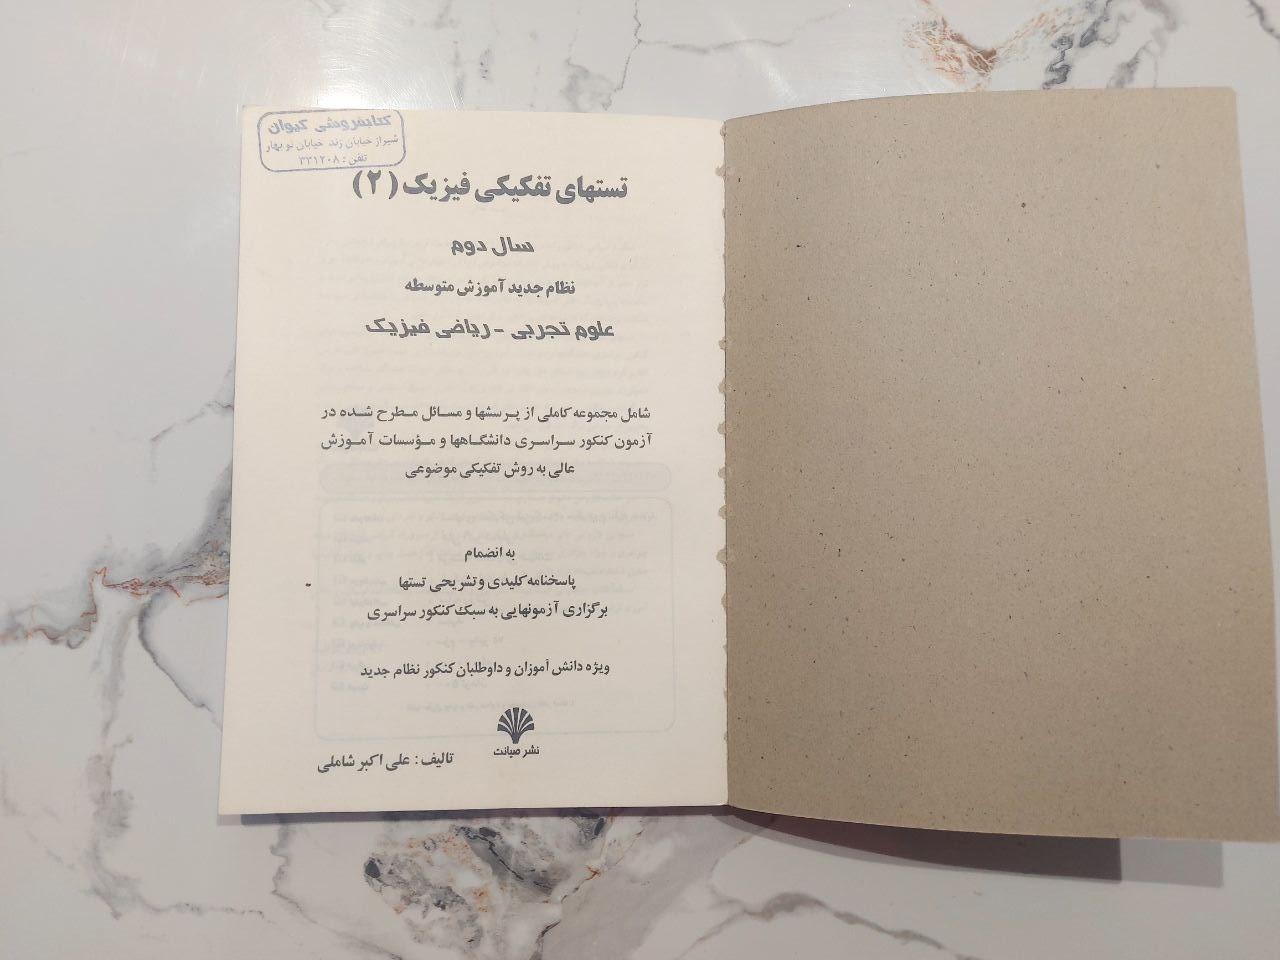 کتابفروشی کیوان
شیراز خیابان زند خیابان نوبهار
تلفن: ۳۳۱۲۰۸
تستهای تفکیکی فیزیک (۲)
سال دوم
نظام جدید آموزش متوسطه
علوم تجربی - ریاضی فیزیک
شامل مجموعه کاملی از پرسشها و مسائل مطرح شده در
آزمون کنکور سراسری دانشگاهها و مؤسسات آموزش
عالی به روش تفکیکی موضوعی
به انضمام
پاسخنامه کلیدی و تشریحی تستها
برگزاری آزمونهایی به سبک کنکور سراسری
ویژه دانش آموزان و داوطلبان کنکور نظام جدید
نشر صیانت
تالیف: علی اکبر شاملی